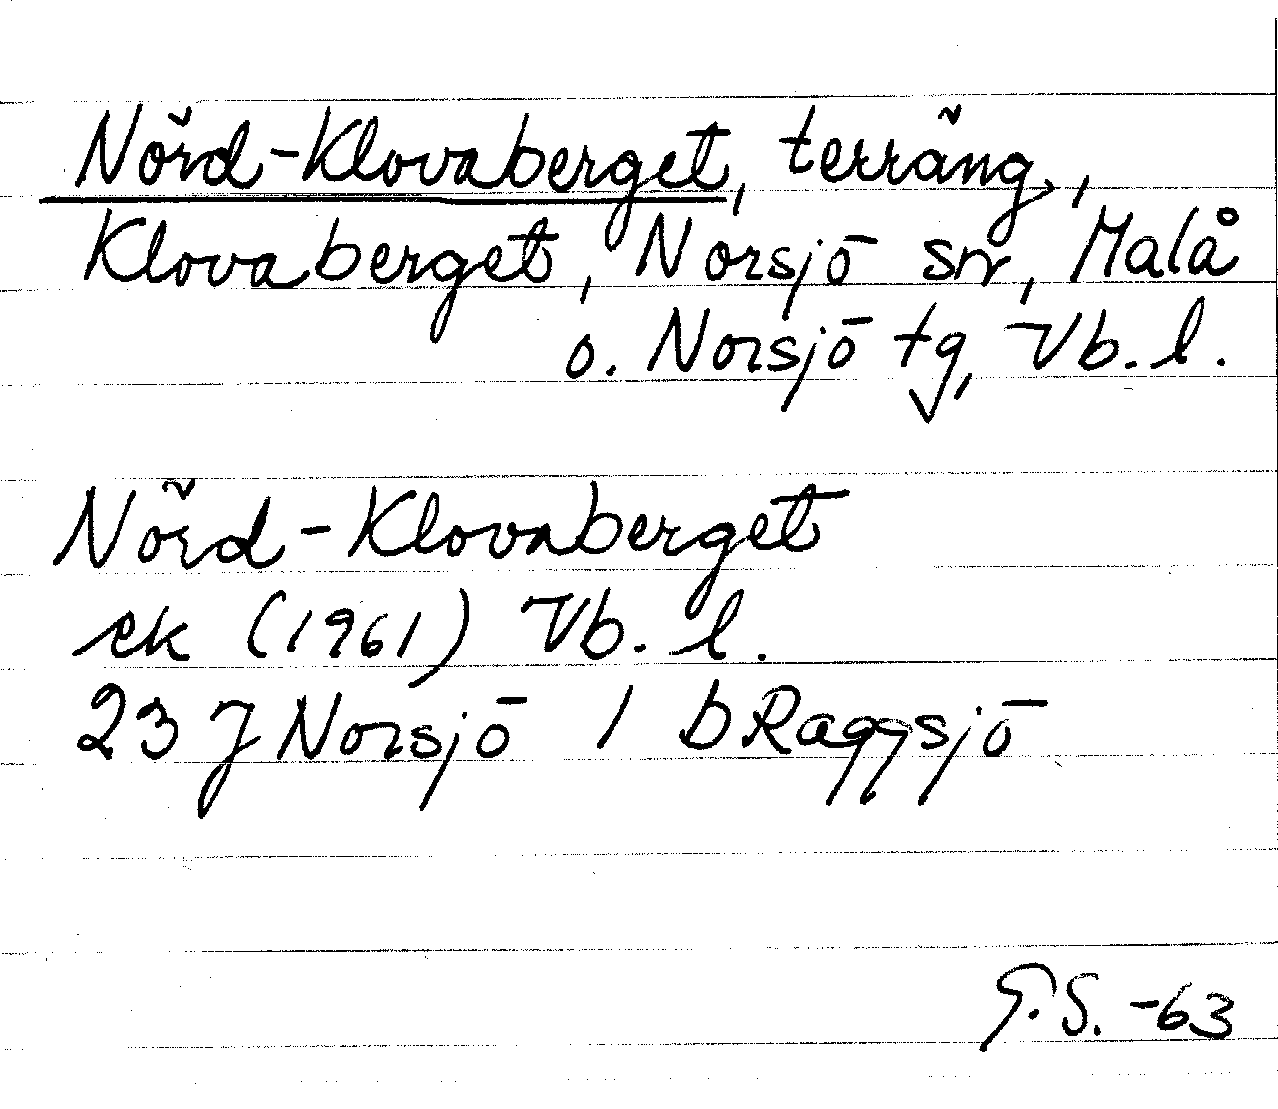 Nörd-Klovaberget, terräng,
Klovaberget, Norsjö sn, Malå
o. Norsjö tg, Vb. l.
Nörd-Klovaberget
ek (1961) Vb. l.
23 J Norsjö / b Raggsjö
G.S. -63